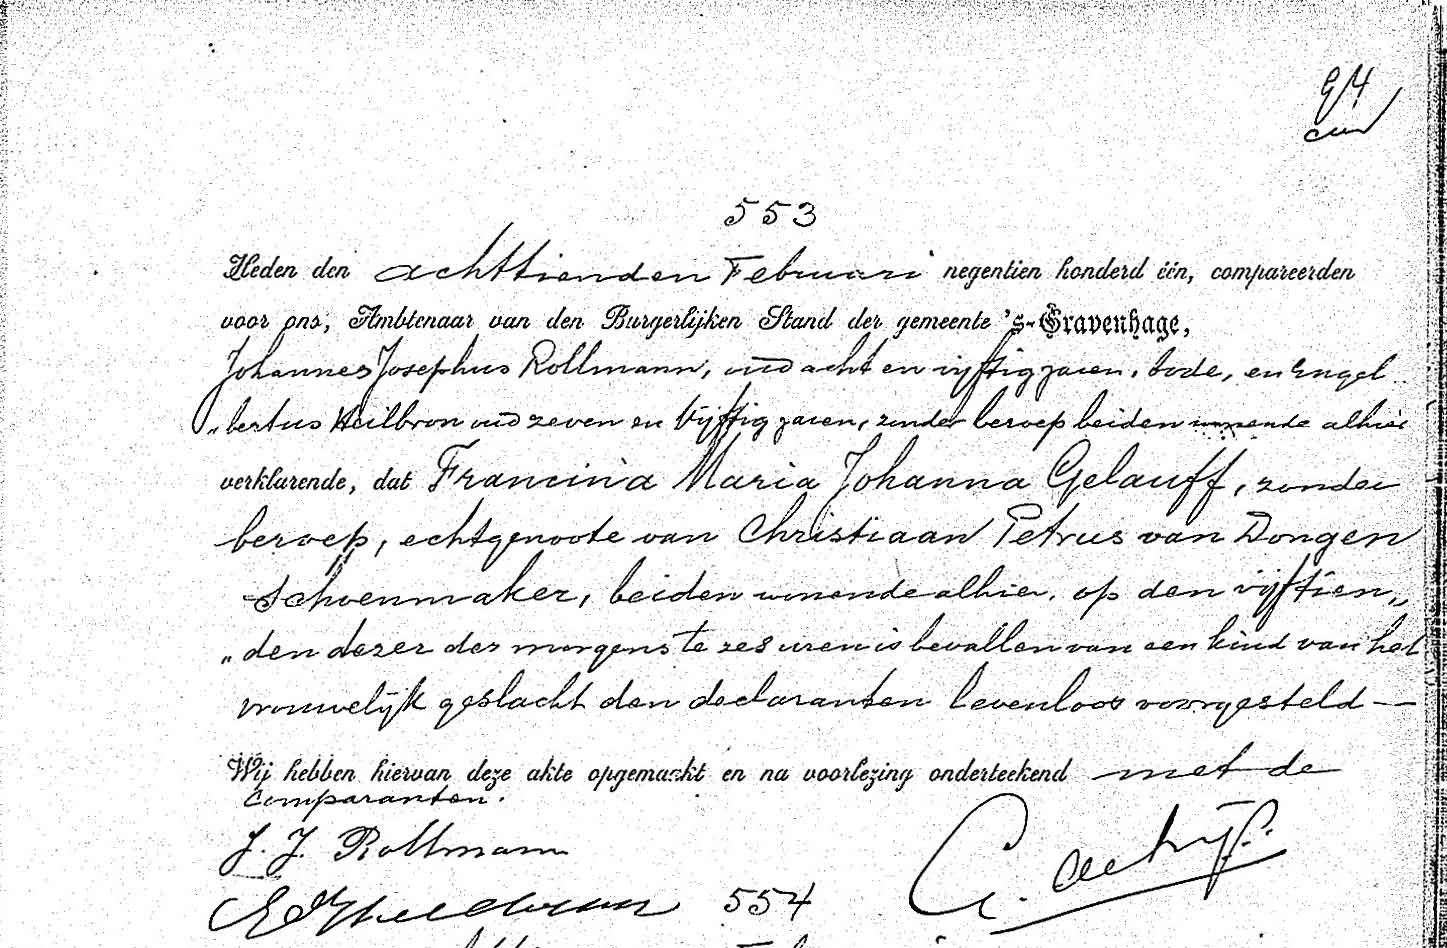 94
553
Heden den achttienden Februari negentien honderd één, compareerden
voor ons, Ambtenaar van den Burgerlijken Stand der gemeente 's-Gravenhage,
Johannes Josephus Rollmann, oud acht en vijftig jaren, bode, en Engel
„bertus Heilbron oud zeven en vijftig jaren, zonder beroep beiden wonende alhier
verklarende, dat Francina Maria Johanna Gelauff, zonder
beroep, echtgenoote van Christiaan Petrus van Dongen
schoenmaker, beiden wonende alhier, op den vijftien„
„den dezer des morgens te zes uren is bevallen van een kind van het
vrouwelijk geslacht den declaranten levenloos voorgesteld —
Wij hebben hiervan deze akte opgemaakt en na voorlezing onderteekend met de
Comparanten.
J. J. Rollmann
554